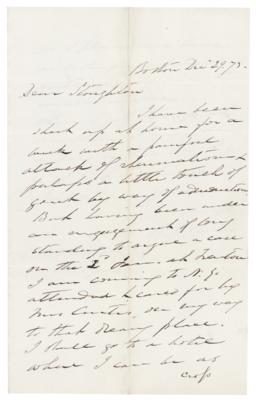 Boston Dec 29, 73.
Dear Stoughton
I have been
shut up at home for a
week with a painful
attack of rheumatism &
perhaps a little touch of
gout by way of
But having been under
an engagement of long
standing to argue a case
on the 2d Jan. at Trenton
I am coming to N.Y.
attended & cared for by
Mrs Curtis, on my way
to that dreary place.
I shall go to a hotel
where I can be as
cross